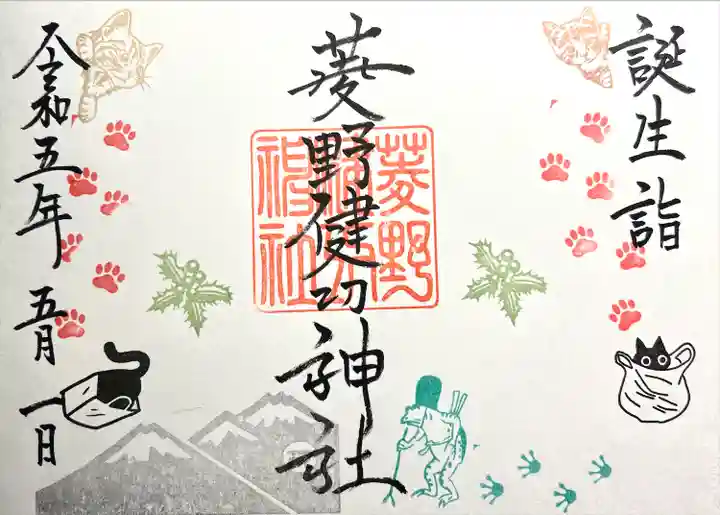 誕生詣
菱野健功神社
菱野
令和五年 五月一日